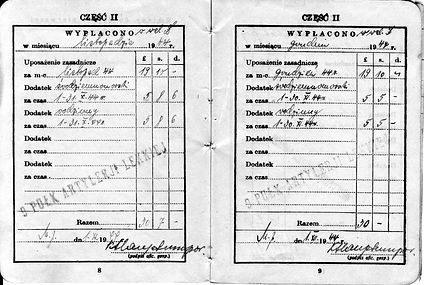 CZĘŚĆ II
WYPŁACONO
w miesiącu listopadzie 1944 r.
Uposażenie zasadnicze £ s. d.
za m-c. listopad 44 19 10 -
Dodatek
za czas 1-30. 5 8 6
Dodatek rodzinny
za czas 1-30. 5 8 6
Dodatek
za czas
Dodatek
za czas
Dodatek
za czas
9 PUŁK ARTYLERJI LEKKIEJ
Razem 30 7 -
M.p. dn. 1. 1944
(podpis ofic. prep.)
8
CZĘŚĆ II
WYPŁACONO
w miesiącu grudniu 1944 r.
Uposażenie zasadnicze £ s. d.
za m-c. grudzień 44 19 10 -
Dodatek
za czas 1-30. 5 5 -
Dodatek rodzinny
za czas 1-30. 5 5 -
Dodatek
za czas
Dodatek
za czas
Dodatek
za czas
9 PUŁK ARTYLERJI LEKKIEJ
Razem 30 -
M.p. dn. 1. 1944
(podpis ofic. prep.)
9